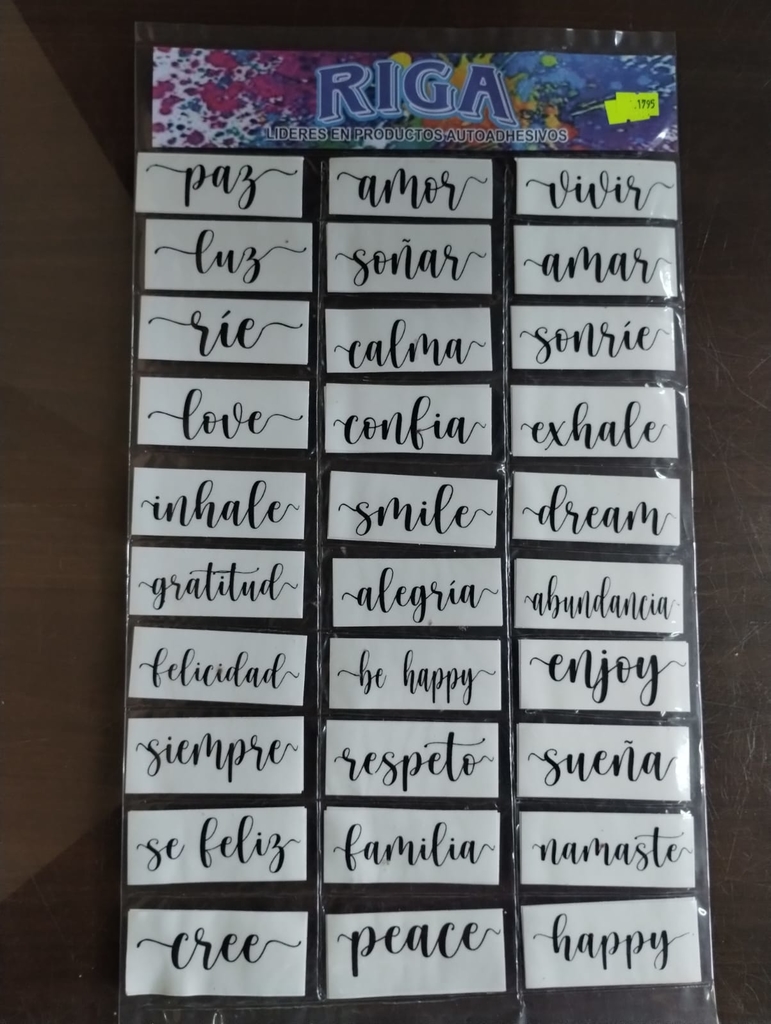 RIGA
LIDERES EN PRODUCTOS AUTOADHESIVOS
1795
paz amor vivir
luz soñar amar
ríe calma sonríe
love confia exhale
inhale smile dream
gratitud alegría abundancia
felicidad be happy enjoy
siempre respeto sueña
se feliz familia namaste
cree peace happy